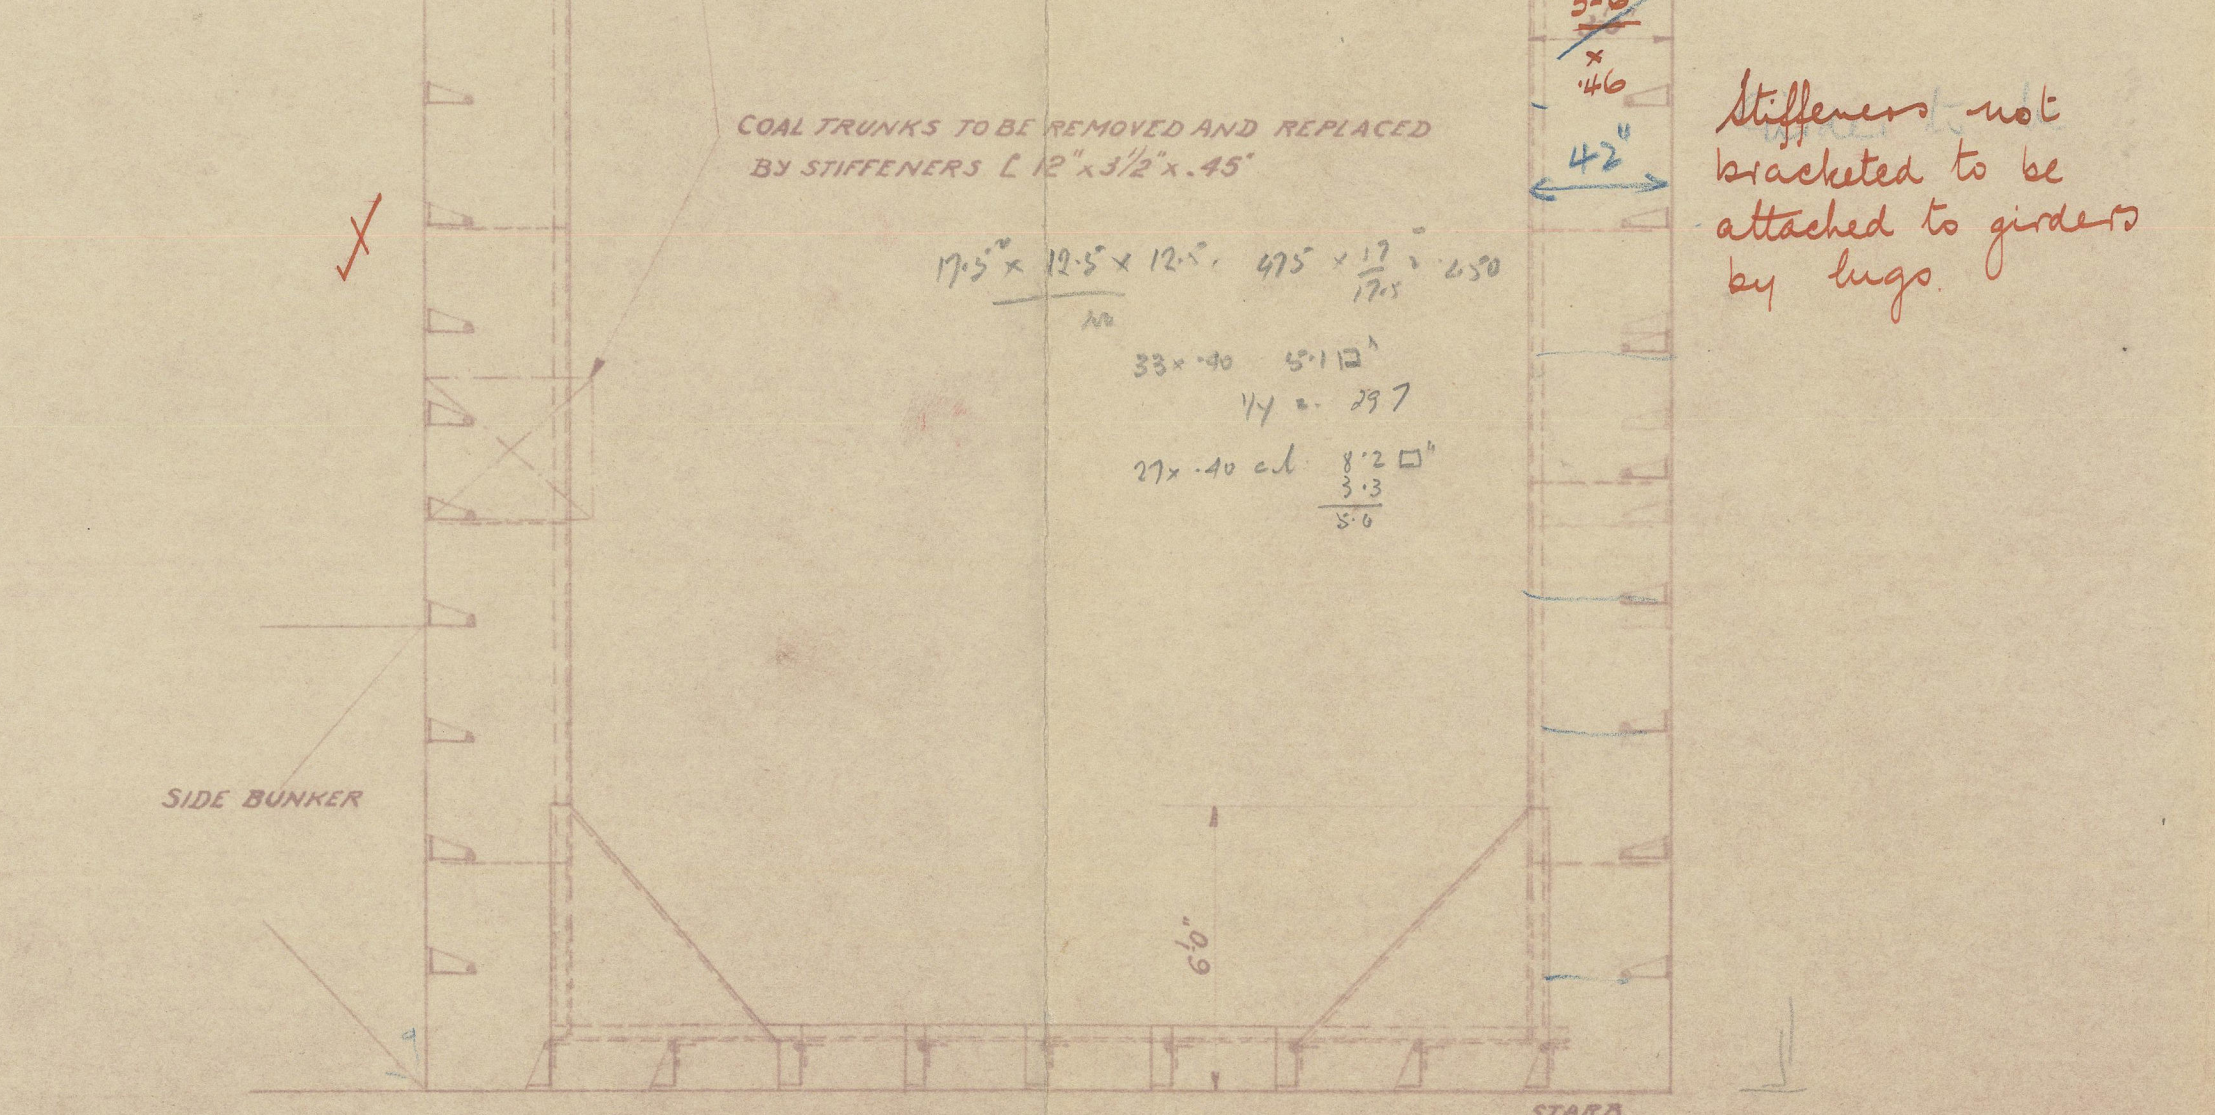 x
.46
COAL TRUNKS TO BE REMOVED AND REPLACED
BY STIFFENERS [ 12" x 3 1/2" x .45"
42"
Stiffeners not
bracketed to be
attached to girders
by lugs.
17.5" x 12.5 x 12.5
475 x 17/17.5 = .450
33 x .40 5.1 □"
1/y = 297
27 x .40 8.2 □"
3.3
SIDE BUNKER
6'0"
STARB